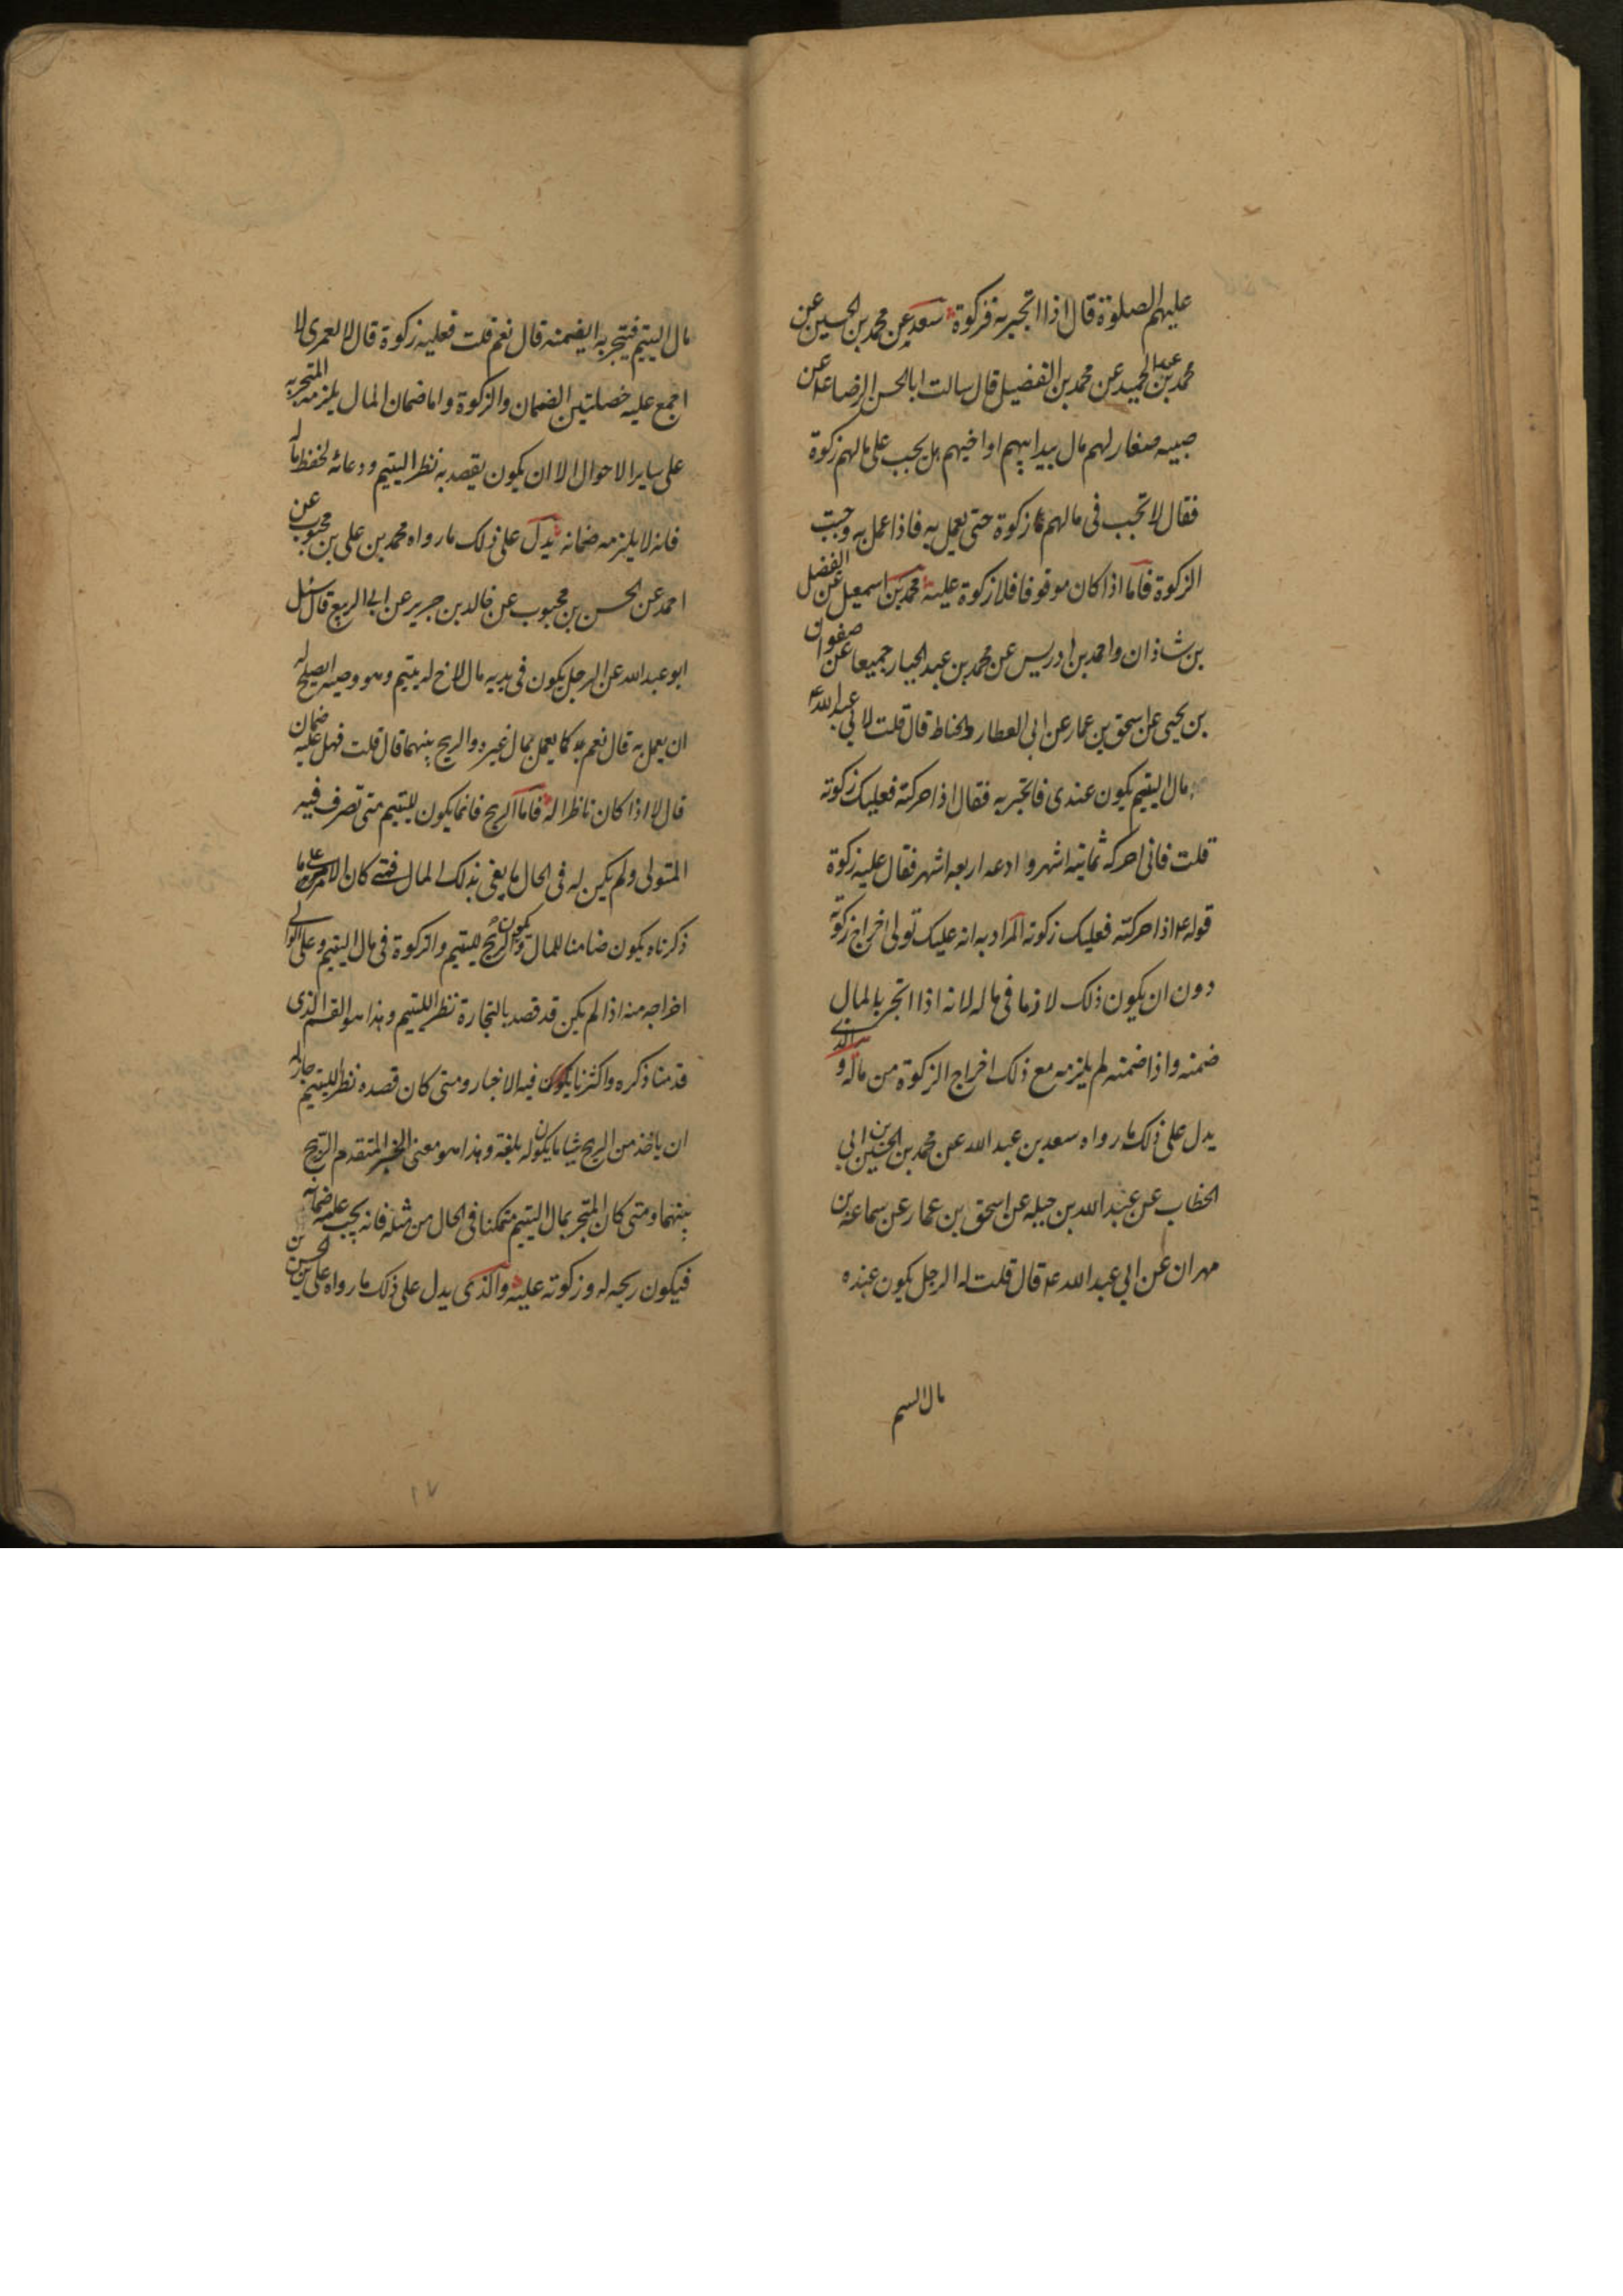 عليهم الصلوة قال اذا اتجر به فزكوة سعد عن محمد بن الحسين عن
محمد بن عبد الحميد عن محمد بن الفضيل قال سالت ابا الحسن الرضا ع عن
صبيه صغار لهم مال بيد ابيهم او اخيهم هل يجب على مالهم زكوة
فقال لا تجب فى مالهم زكوة حتى يعمل به فاذا عمل به وجبت
الزكوة فاما اذا كان موقوفا فلا زكوة عليه محمد بن اسمعيل عن الفضل
بن شاذان واحمد بن ادريس عن محمد بن عبد الجبار جميعا عن صفوان
بن يحيى عن اسحق بن عمار عن ابى العطار والحناط قال قلت لابى عبد الله ع
مال اليتيم يكون عندى فاتجر به فقال اذا حركته فعليك زكوته
قلت فانى احركه ثمانية اشهر وادعه اربعه اشهر فقال عليه زكوة
قوله ع اذا حركته فعليك زكوته المراد به انه عليك تولى اخراج زكوته
دون ان يكون ذلك لازما فى ماله لانه اذا اتجر بالمال
ضمنه واذا ضمنه لم يلزمه مع ذلك اخراج الزكوة من ماله والذى
يدل على ذلك ما رواه سعد بن عبد الله عن محمد بن الحسين بن ابى
الخطاب عن عبد الله بن جبله عن اسحق بن عمار عن سماعة بن
مهران عن ابى عبد الله ع قال قلت له الرجل يكون عنده
مال السم
مال اليتيم فيتجر به ايضمنه قال نعم قلت فعليه زكوة قال لا لعمرى لا
اجمع عليه خصلتين الضمان والزكوة واما ضمان المال يلزمه المتجر به
على ساير الاحوال الا ان يكون يقصد به نظر اليتيم ودعائه لحفظ ماله
فانه لا يلزمه ضمانه يدل على ذلك ما رواه محمد بن على بن محبوب عن
احمد عن الحسن بن محبوب عن خالد بن جرير عن ابى الربيع قال سئل
ابو عبد الله عن الرجل يكون فى يديه مال لاخ له يتيم وهو وصيه ايصلح له
ان يعمل به قال نعم كما يعمل بمال غيره والربح بينهما قال قلت فهل عليه ضمان
قال لا اذا كان ناظرا له فاما الربح فانما يكون لليتيم متى تصرف فيه
المتولى ولم يكن له فى الحال ما يفى بذلك المال فمتى كان الامر على ما
ذكرناه يكون ضامنا للمال ويكون الربح لليتيم والزكوة فى مال اليتيم وعلى الوالى
اخراجه منه اذا لم يكن قد قصد بالتجارة نظرا لليتيم وهذا هو القسم الذى
قدمنا ذكره واكثرنا فيه الاخبار ومتى كان قصده نظرا لليتيم جاز له
ان ياخذ من الربح شيئا ما يكون له بلغة وهذا هو معنى الخبر المتقدم الربح
بينهما ومتى كان المتجر بمال اليتيم متمكنا فى الحال من مثله فانه يجب عليه ضمانه
فيكون ربحه له وزكوته عليه والذى يدل على ذلك ما رواه على بن الحسن بن
١٧